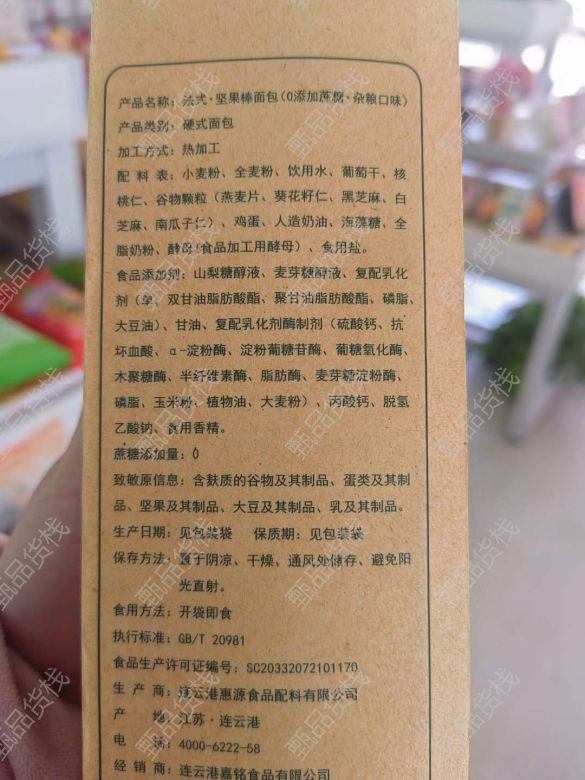 产品名称：法式·坚果棒面包(0添加蔗糖·杂粮口味)
产品类别：硬式面包
加工方式：热加工
配 料 表：小麦粉、全麦粉、饮用水、葡萄干、核
桃仁、谷物颗粒（燕麦片、葵花籽仁、黑芝麻、白
芝麻、南瓜子仁）、鸡蛋、人造奶油、海藻糖、全
脂奶粉、酵母(食品加工用酵母）、食用盐。
食品添加剂：山梨糖醇液、麦芽糖醇液、复配乳化
剂（单，双甘油脂肪酸酯、聚甘油脂肪酸酯、磷脂、
大豆油）、甘油、复配乳化剂酶制剂（硫酸钙、抗
坏血酸、α-淀粉酶、淀粉葡糖苷酶、葡糖氧化酶、
木聚糖酶、半纤维素酶、脂肪酶、麦芽糖淀粉酶、
磷脂、玉米粉、植物油、大麦粉）、丙酸钙、脱氢
乙酸钠、食用香精。
蔗糖添加量：0
致敏原信息：含麸质的谷物及其制品、蛋类及其制
品、坚果及其制品、大豆及其制品、乳及其制品。
生产日期：见包装袋 保质期：见包装袋
保存方法：置于阴凉、干燥、通风处储存、避免阳
光直射。
食用方法：开袋即食
执行标准：GB/T 20981
食品生产许可证编号：SC20332072101170
生 产 商：连云港惠源食品配料有限公司
产 地：江苏·连云港
电 话：4000-6222-58
经 销 商：连云港嘉铭食品有限公司
甄品货栈